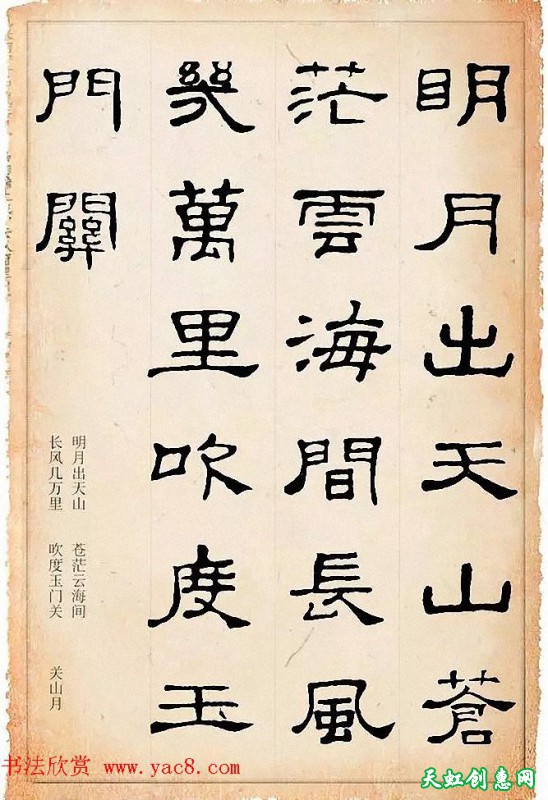 明月出天山蒼
茫雲海間長風
幾萬里吹度玉
門關
明月出天山 苍茫云海间 关山月
长风几万里 吹度玉门关
书法欣赏 www.yac8.com
天虹创惠网